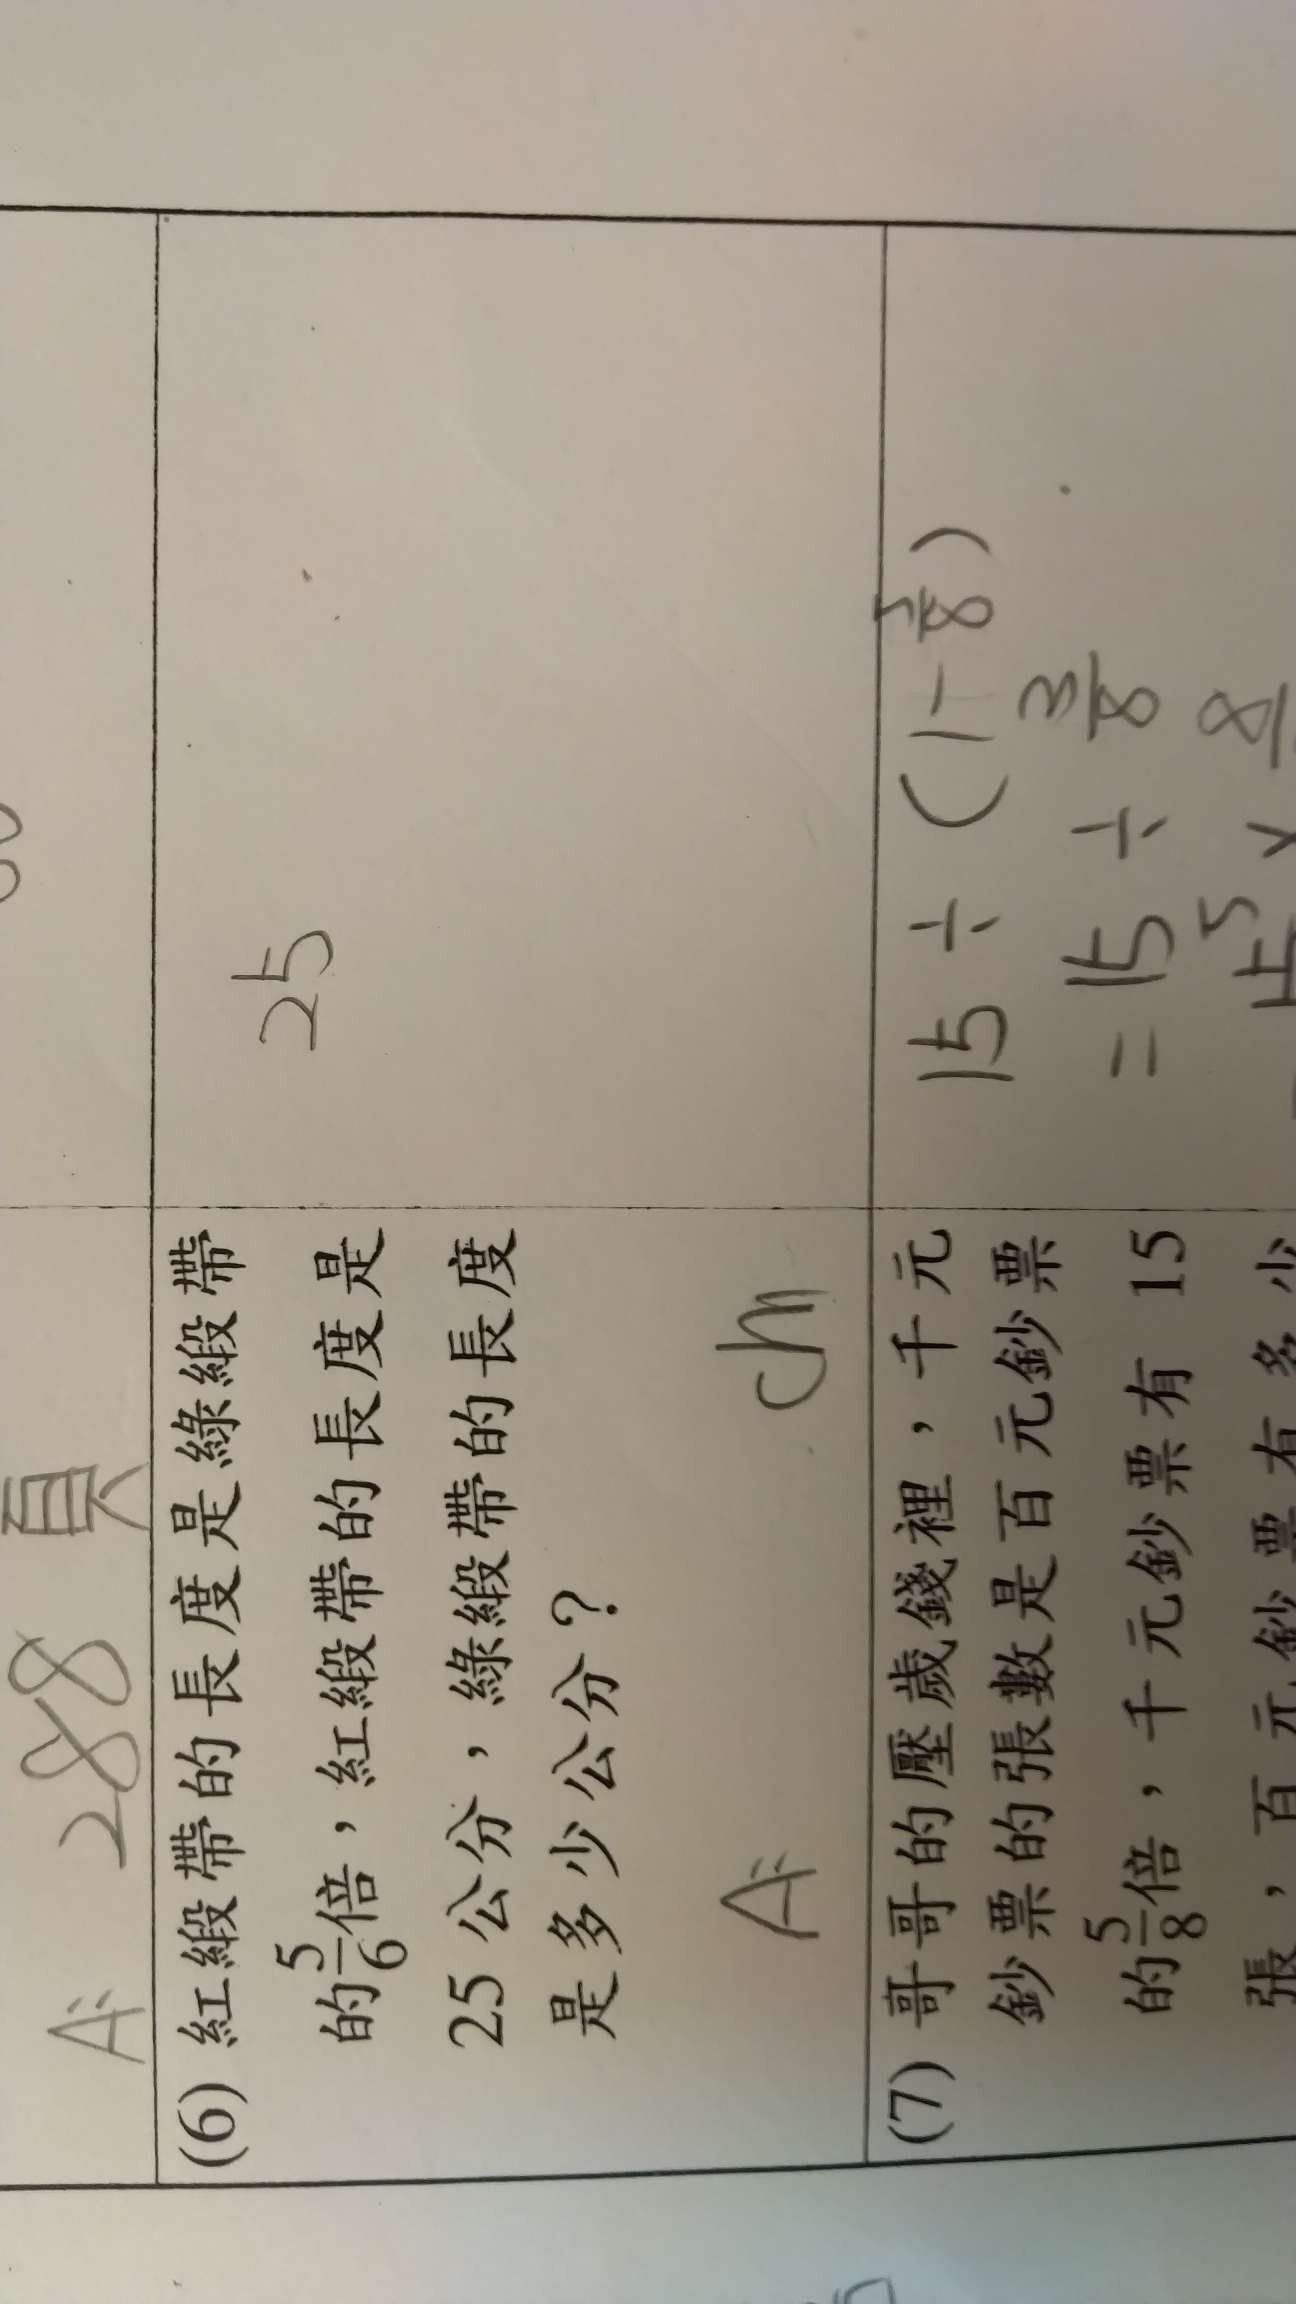 A: 288 頁
(6) 紅緞帶的長度是綠緞帶
的5/6倍，紅緞帶的長度是
25 公分，綠緞帶的長度
是多少公分？
A: cm
25
(7) 哥哥的壓歲錢裡，千元
鈔票的張數是百元鈔票
的5/8倍，千元鈔票有 15
張，百元鈔票有多少
15 ÷ (1-5/8)
= 15 ÷ 3/8